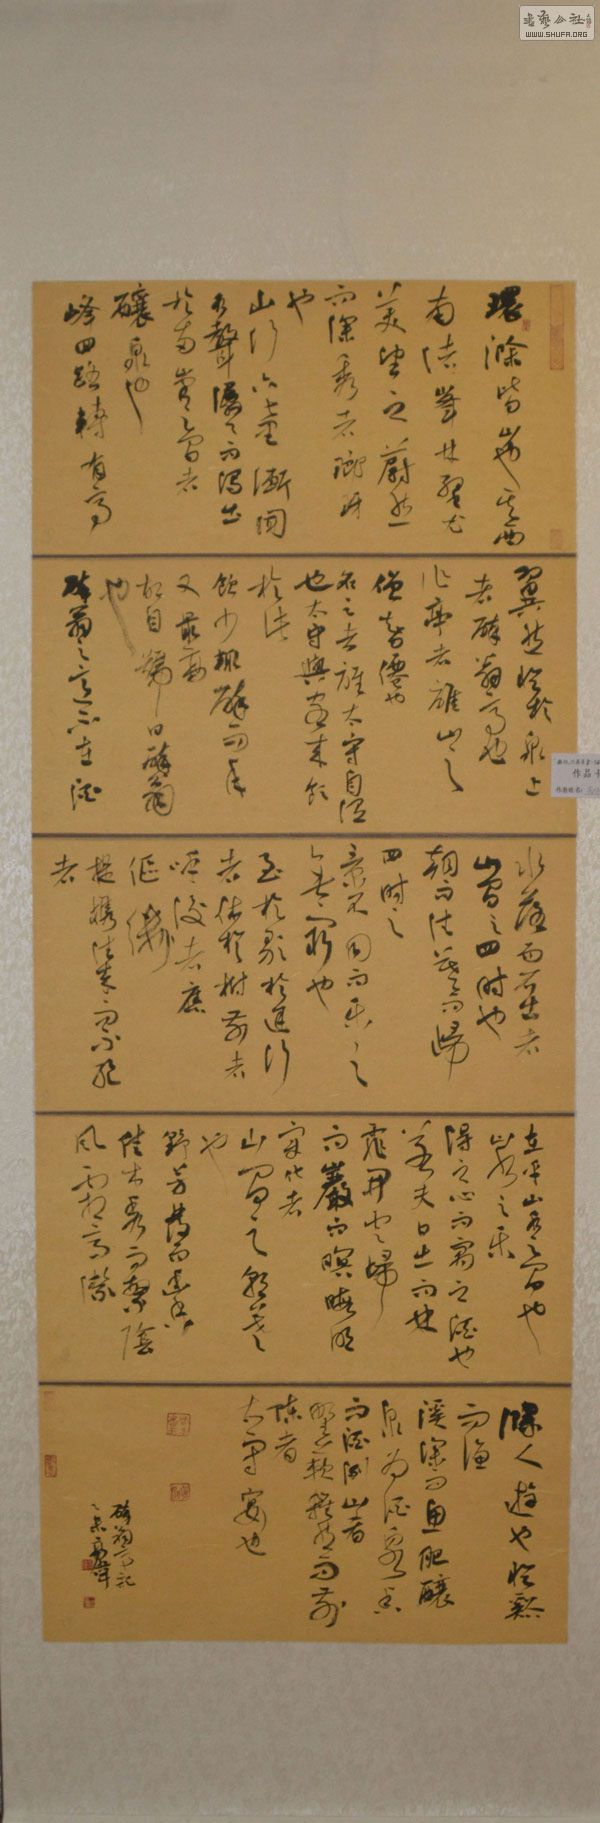 書藝公社
WWW.SHUFA.ORG
環滁皆山也其西
南諸峯林壑尤
美望之蔚然
而深秀者瑯琊
也
山行六七里漸聞
水聲潺潺而瀉出
於兩峯之間者
釀泉也
峰回路轉有亭
翼然臨於泉上
者醉翁亭也
作亭者誰山之
僧智僊也
名之者誰太守自謂
也太守與客來飲
於此
飲少輒醉而年
又最高
故自號曰醉翁
也
醉翁之意不在酒
水落而石出者
山間之四時也
朝而往暮而歸
四時之
景不同而樂
亦無窮也
至於歌於途行
者休於樹前者
呼後者應
傴僂
提攜往來而不絕
者
在乎山水之間也
山水之樂
得之心而寓之酒也
若夫日出而林
霏開雲歸
而巖而暝晦明
變化者
山間之朝暮
也
野芳發而幽香
佳木秀而繁陰
風霜高潔
滁人遊也臨谿
而漁
溪深而魚肥釀
泉為酒泉香
而酒洌山肴
野蔌雜然而前
陳者
太守宴也
醉翁亭記
作品
作者姓名: